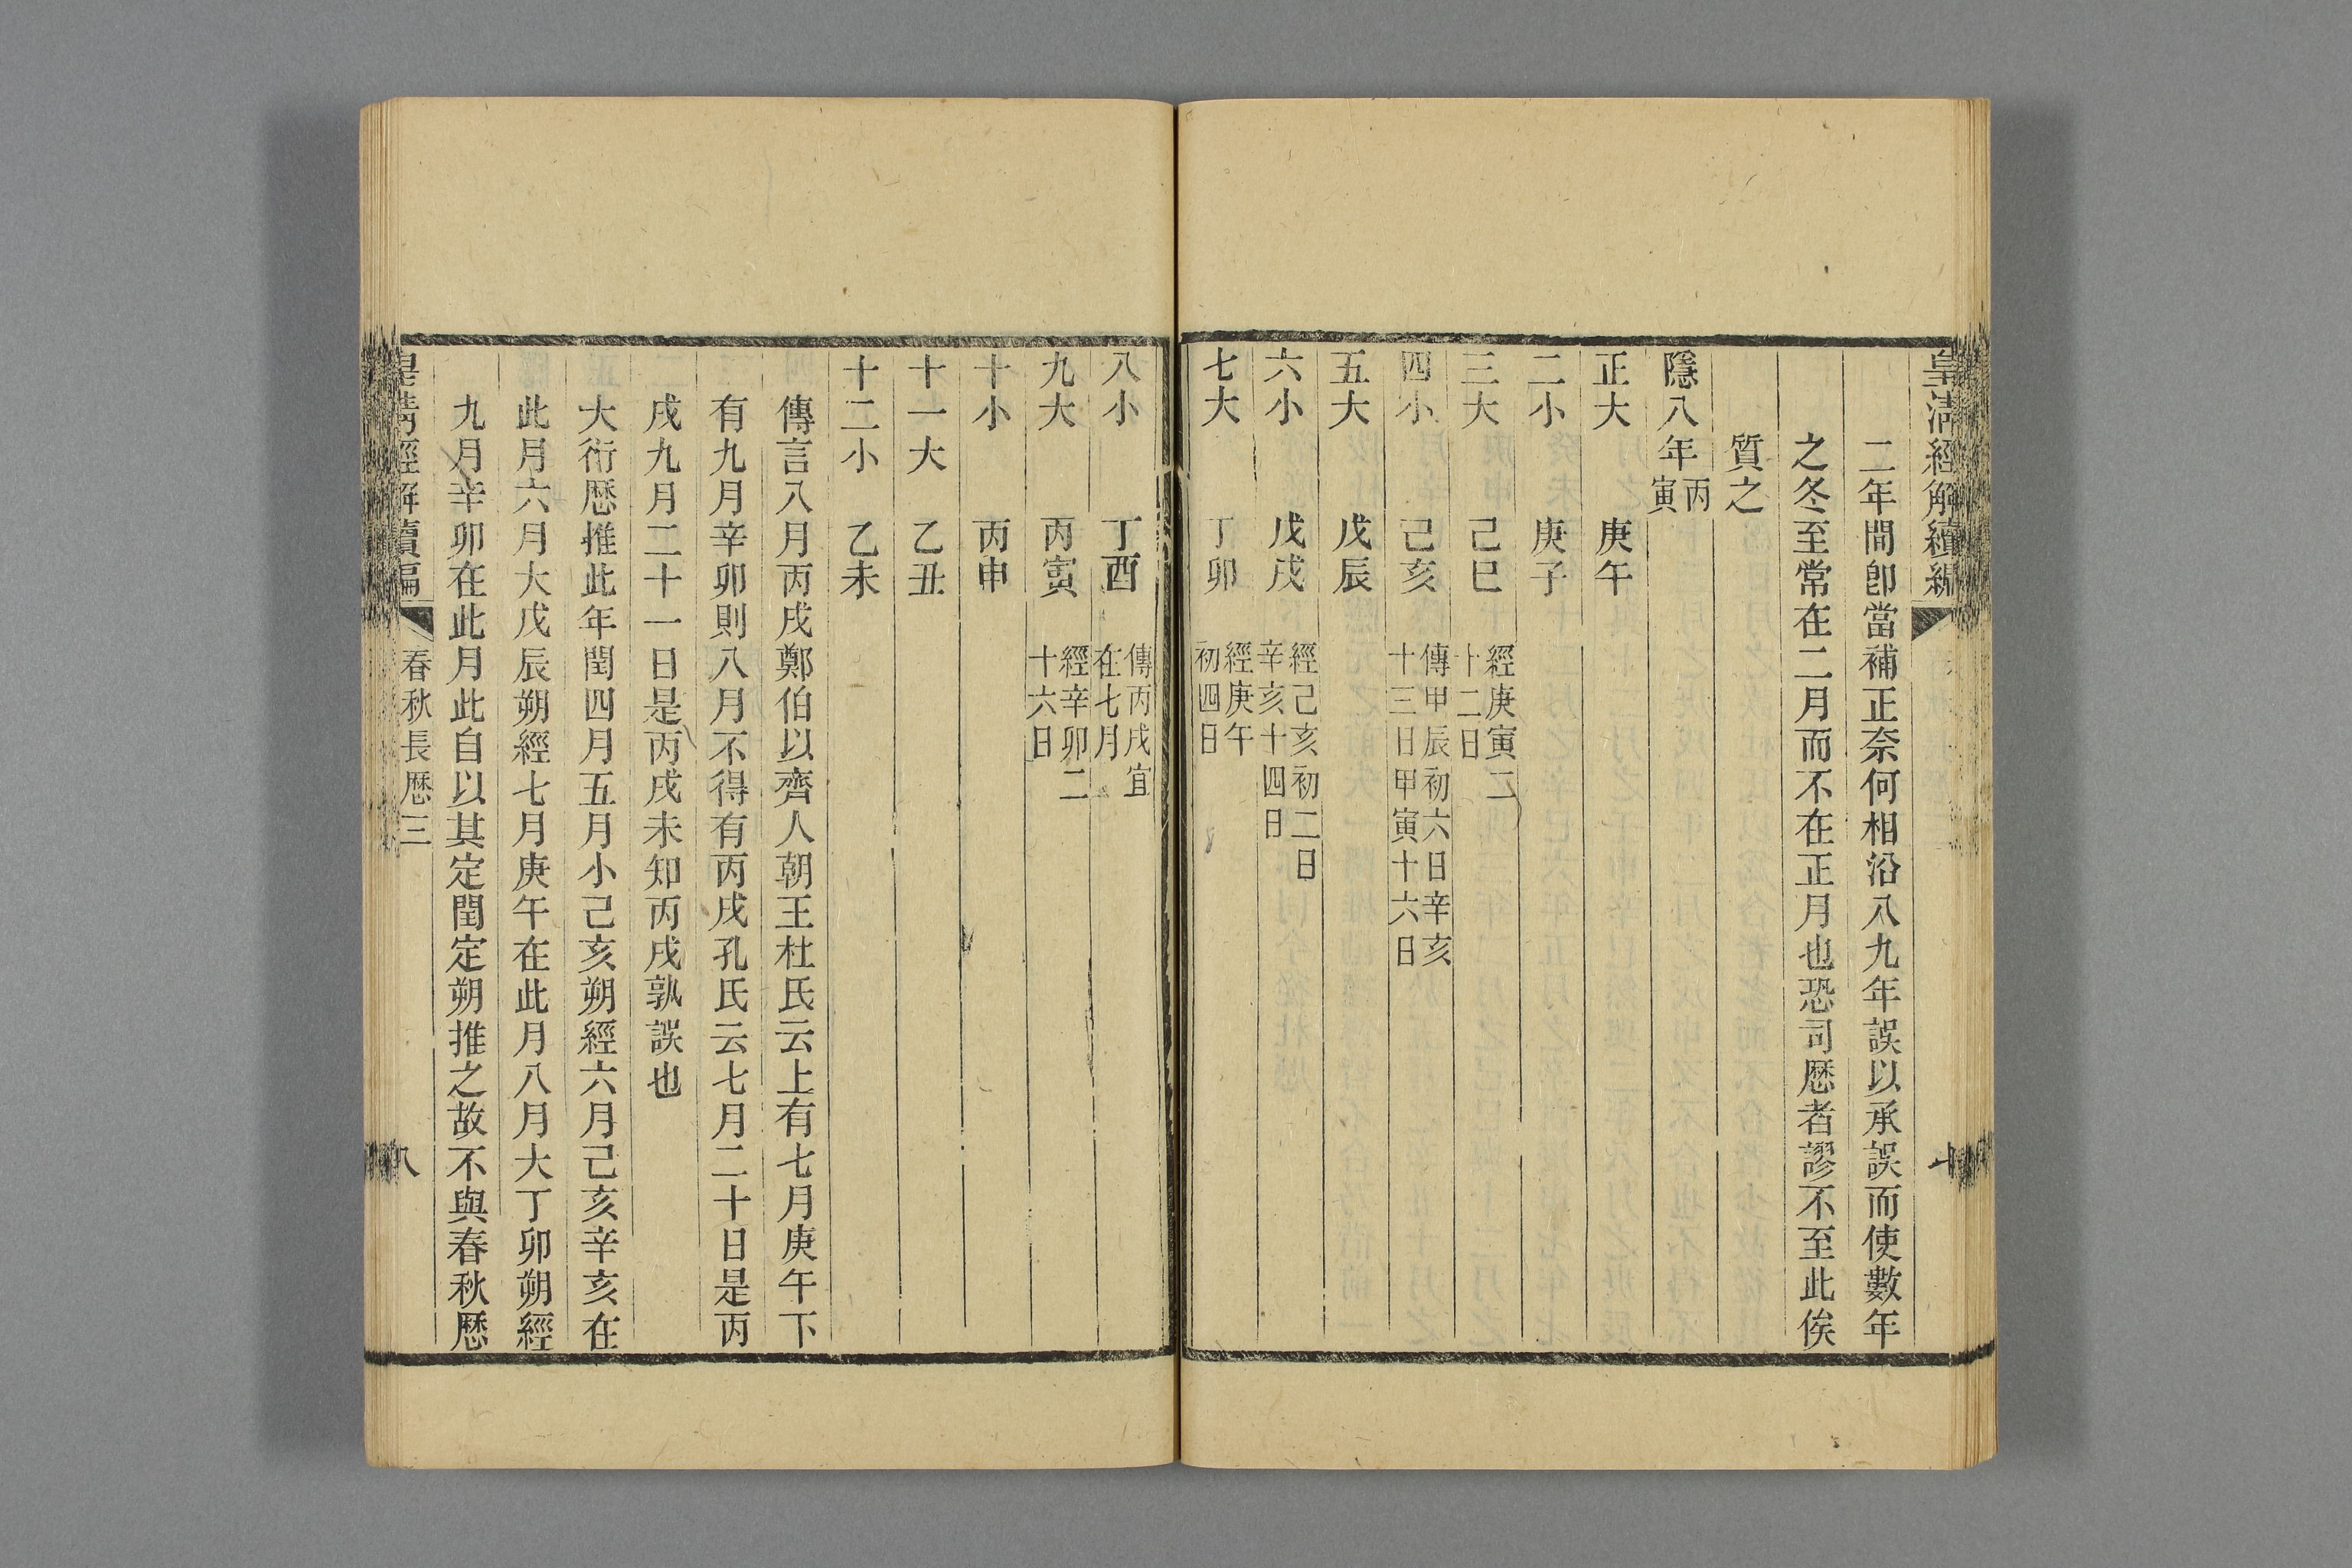 皇清經解續編
二年間卽當補正奈何相沿八九年誤以承誤而使數年
之冬至常在二月而不在正月也恐司厯者謬不至此俟
質之
隱八年丙寅
正大 庚午
二小 庚子
三大 己巳 經庚寅二十二日
四小 己亥 傳甲辰初六日辛亥十三日甲寅十六日
五大 戊辰
六小 戊戌 經己亥初二日辛亥十四日
七大 丁卯 經庚午初四日
八小 丁酉 傳丙戌宜在七月
九大 丙寅 經辛卯二十六日
十小 丙申
十一大 乙丑
十二小 乙未
傳言八月丙戌鄭伯以齊人朝王杜氏云上有七月庚午下
有九月辛卯則八月不得有丙戌孔氏云七月二十日是丙
戌九月二十一日是丙戌未知丙戌孰誤也
大衍厯推此年閏四月五月小己亥朔經六月己亥辛亥在
此月六月大戊辰朔經七月庚午在此月八月大丁卯朔經
九月辛卯在此月此自以其定閏定朔推之故不與春秋厯
皇清經解續編 春秋長厯三 八